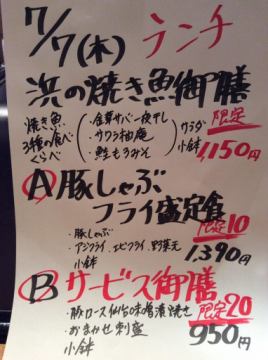 7/7(木) ランチ
浜の焼き魚御膳
焼き魚
3種の食べ
くらべ
・金華サバ一夜干し
・サワラ柚庵
・鮭もろみそ
サラダ
小鉢
限定
1,150円
A 豚しゃぶ
フライ盛定食
限定10
・豚しゃぶ
・アジフライ、エビフライ、野菜天
小鉢
1,390円
B サービス御膳
限定20
・豚ロース仙台味噌漬焼き
・おまかせ刺盛
小鉢
950円